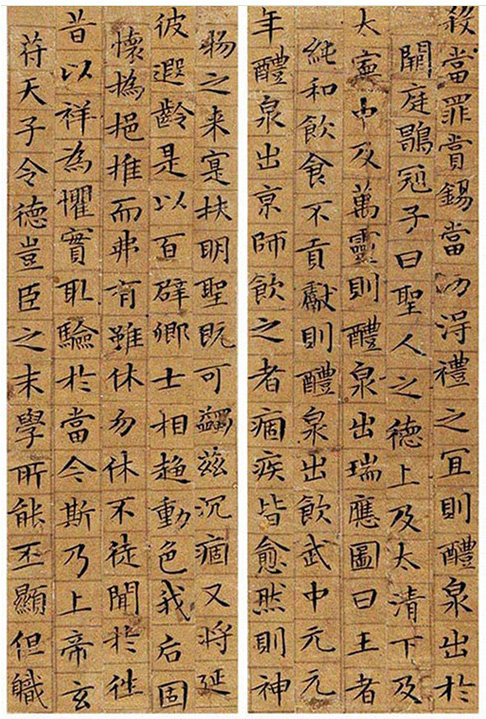 殺當罪賞錫當功得禮之冝則醴泉出於
闕庭鶡冠子曰聖人之德上及太清下及
太寧中及萬靈則醴泉出瑞應圖曰王者
純和飲食不貢獻則醴泉出飲武中元元
年醴泉出亰師飲之者痼疾皆愈然則神
物之来寔扶明聖既可蠲茲沉痼又將延
彼遐齡是以百辟卿士相趨動色我后固
懷撝挹推而弗有雖休勿休不徒聞於往
昔以祥為懼實取驗於當今斯乃上帝玄
符天子令德豈臣之末學所能丕顯但職